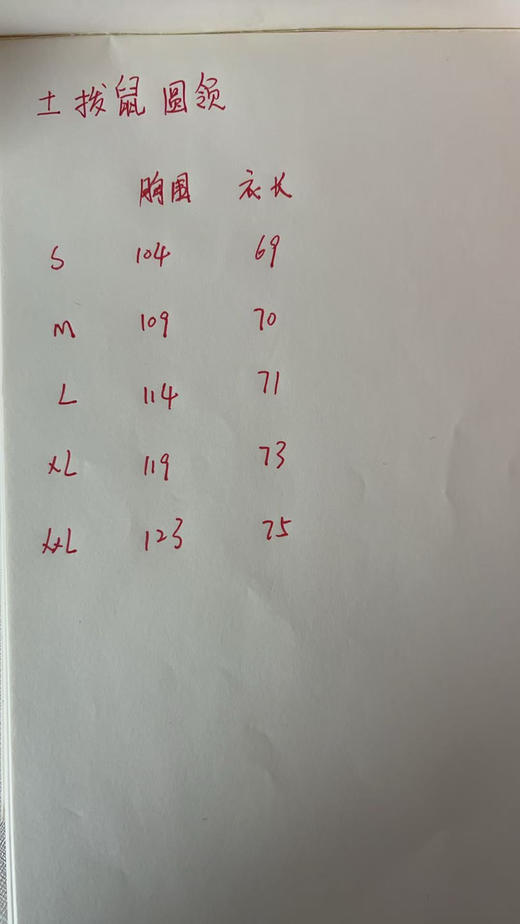 土拨鼠圆领
胸围 衣长
S 104 69
M 109 70
L 114 71
XL 119 73
XXL 123 75